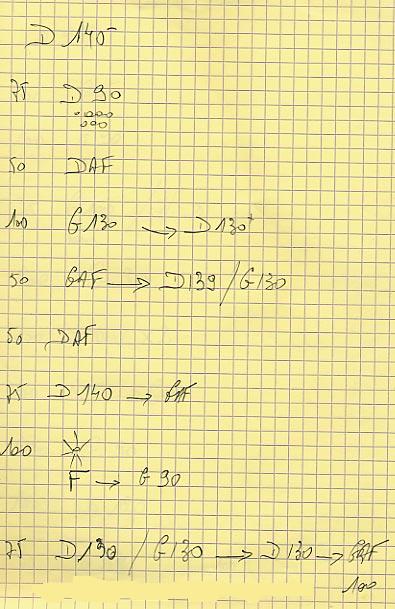 D 140-
75 D 90
50 DAF
100 G130 → D130+
50 GAF → D139 / G130
50 DAF
75 D 140 → GAF
100
F → G 90
75 D 130 / G 130 → D 130 → GAF
100